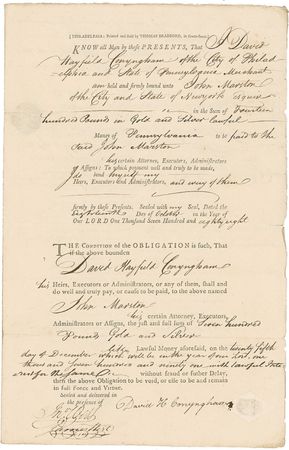 [PHILADELPHIA: Printed and Sold by THOMAS BRADFORD, in Front-Street.]
KNOW all Men by these PRESENTS, That I David
Hayfield Conyngham of the City of Philad
elphia and State of Pennsylvania Merchant
am held and firmly bound unto John Marston
of the City and State of Newyork
in the Sum of Fourteen
hundred Pounds in Gold and Silver lawful
Money of Pennsylvania to be paid to the
said John Marston
his certain Attorney, Executors, Administrators
or Assigns: To which Payment well and truly to be made,
I do bind myself my
Heirs, Executors and Administrators, and every of them
firmly by these Presents. Sealed with my Seal, Dated the
eighteenth Day of October in the Year of
Our LORD One Thousand Seven Hundred and eighty eight
THE CONDITION of the OBLIGATION is such, That
if the above bounden
David Hayfield Conyngham
his Heirs, Executors or Administrators, or any of them, shall and
do well and truly pay, or cause to be paid, to the above named
John Marston
his certain Attorney, Executors,
Administrators or Assigns, the just and full Sum of Seven hundred
Pounds Gold and Silver
Lawful Money aforesaid, on the twenty fifth
day of December which will be in the year of our Lord, one
thousand seven hundred and ninety one with lawful Inte
rest for the same without fraud or further Delay,
then the above Obligation to be void, or else to be and remain
in full Force and Virtue.
Sealed and delivered
in the presence of
David H Conyngham